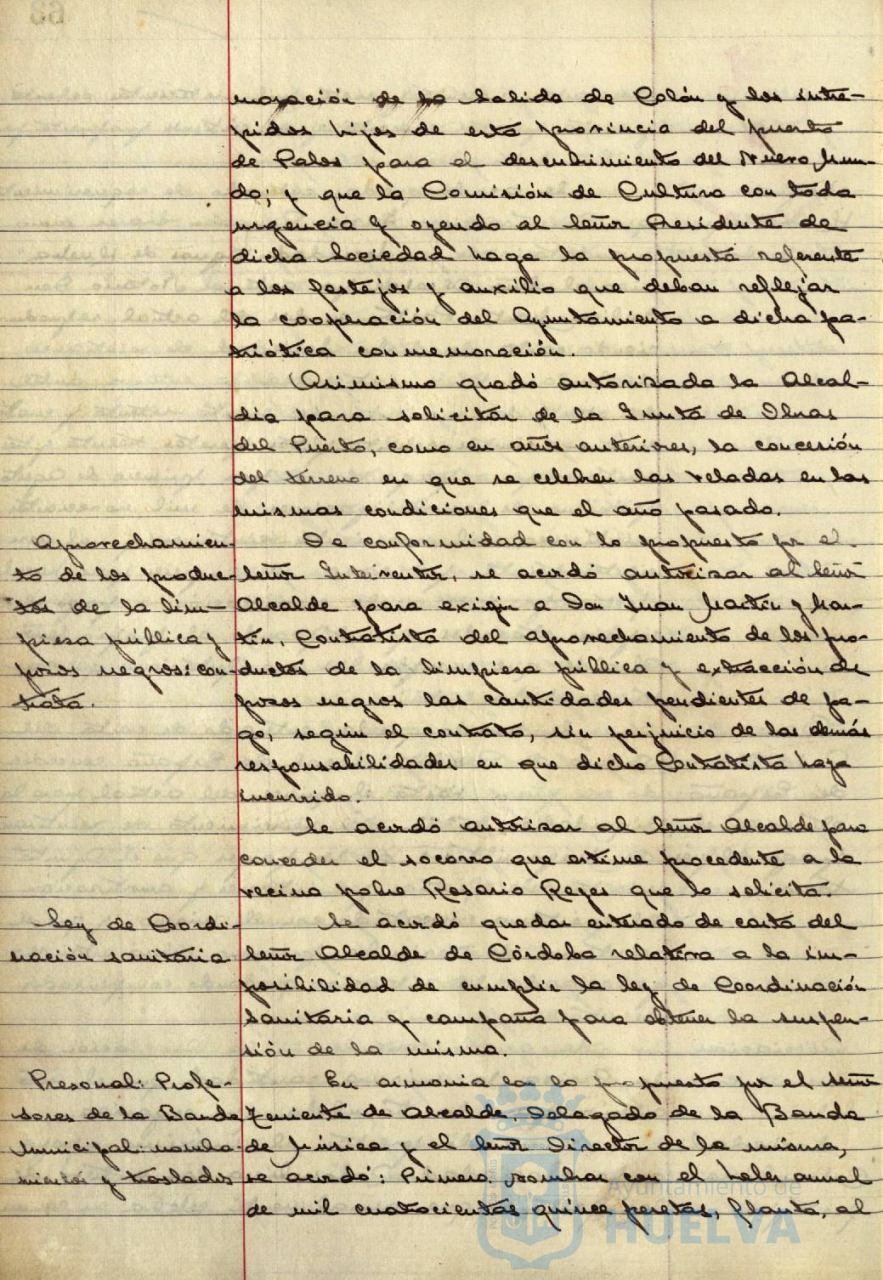 moración de la salida de Colón y los intré-
pidos hijos de esta provincia del puerto
de Palos para el descubrimiento del Nuevo Mun-
do; y que la Comisión de Cultura con toda
urgencia y oyendo al Señor Presidente de
dicha Sociedad haga la propuesta referente
a los festejos y auxilio que deban reflejar
la cooperación del Ayuntamiento a dicha pa-
triótica conmemoración.
Asimismo quedó autorizada la Alcal-
día para solicitar de la Junta de Obras
del Puerto, como en años anteriores, la concesión
del terreno en que se celebren las veladas en las
mismas condiciones que el año pasado.
Aprovechamien-
to de los produc-
tos de la lim-
pieza pública y
pozos negros: con-
trata.
De conformidad con lo propuesto por el
Señor Interventor, se acordó autorizar al Señor
Alcalde para exigir a Don Juan Martín y Mar-
tín, Contratista del aprovechamiento de los pro-
ductos de la limpieza pública y extracción de
pozos negros las cantidades pendientes de pa-
go, según el contrato, sin perjuicio de las demás
responsabilidades en que dicho Contratista haya
incurrido.
Se acordó autorizar al Señor Alcalde para
conceder el socorro que estime procedente a la
vecina pobre Rosario Reyes que lo solicita.
Ley de Coordi-
nación sanitaria
Se acordó quedar enterado de carta del
Señor Alcalde de Córdoba relativa a la im-
posibilidad de cumplir la ley de Coordinación
Sanitaria y campaña para obtener la suspen-
sión de la misma.
Presonal: Profe-
sores de la Banda
Municipal: nomba-
mientos y traslados
En armonía con lo propuesto por el Señor
Teniente de Alcalde, Delegado de la Banda
de Música y el Señor Director de la misma,
se acordó: Primero. nombrar con el haber anual
de mil cuatrocientas quince pesetas, flauta, al
Ayuntamiento de
HUELVA